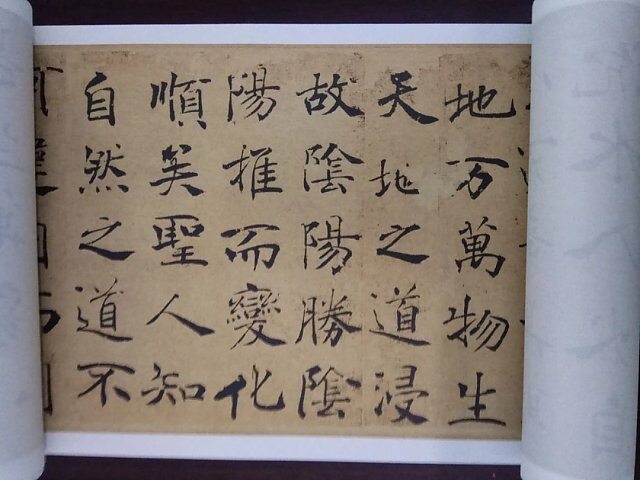 地万萬物生
天地之道浸
故陰陽勝陰
陽推而變化
順矣聖人知
自然之道不